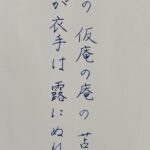 の仮庵の庵の苫
が衣手は露にぬれ